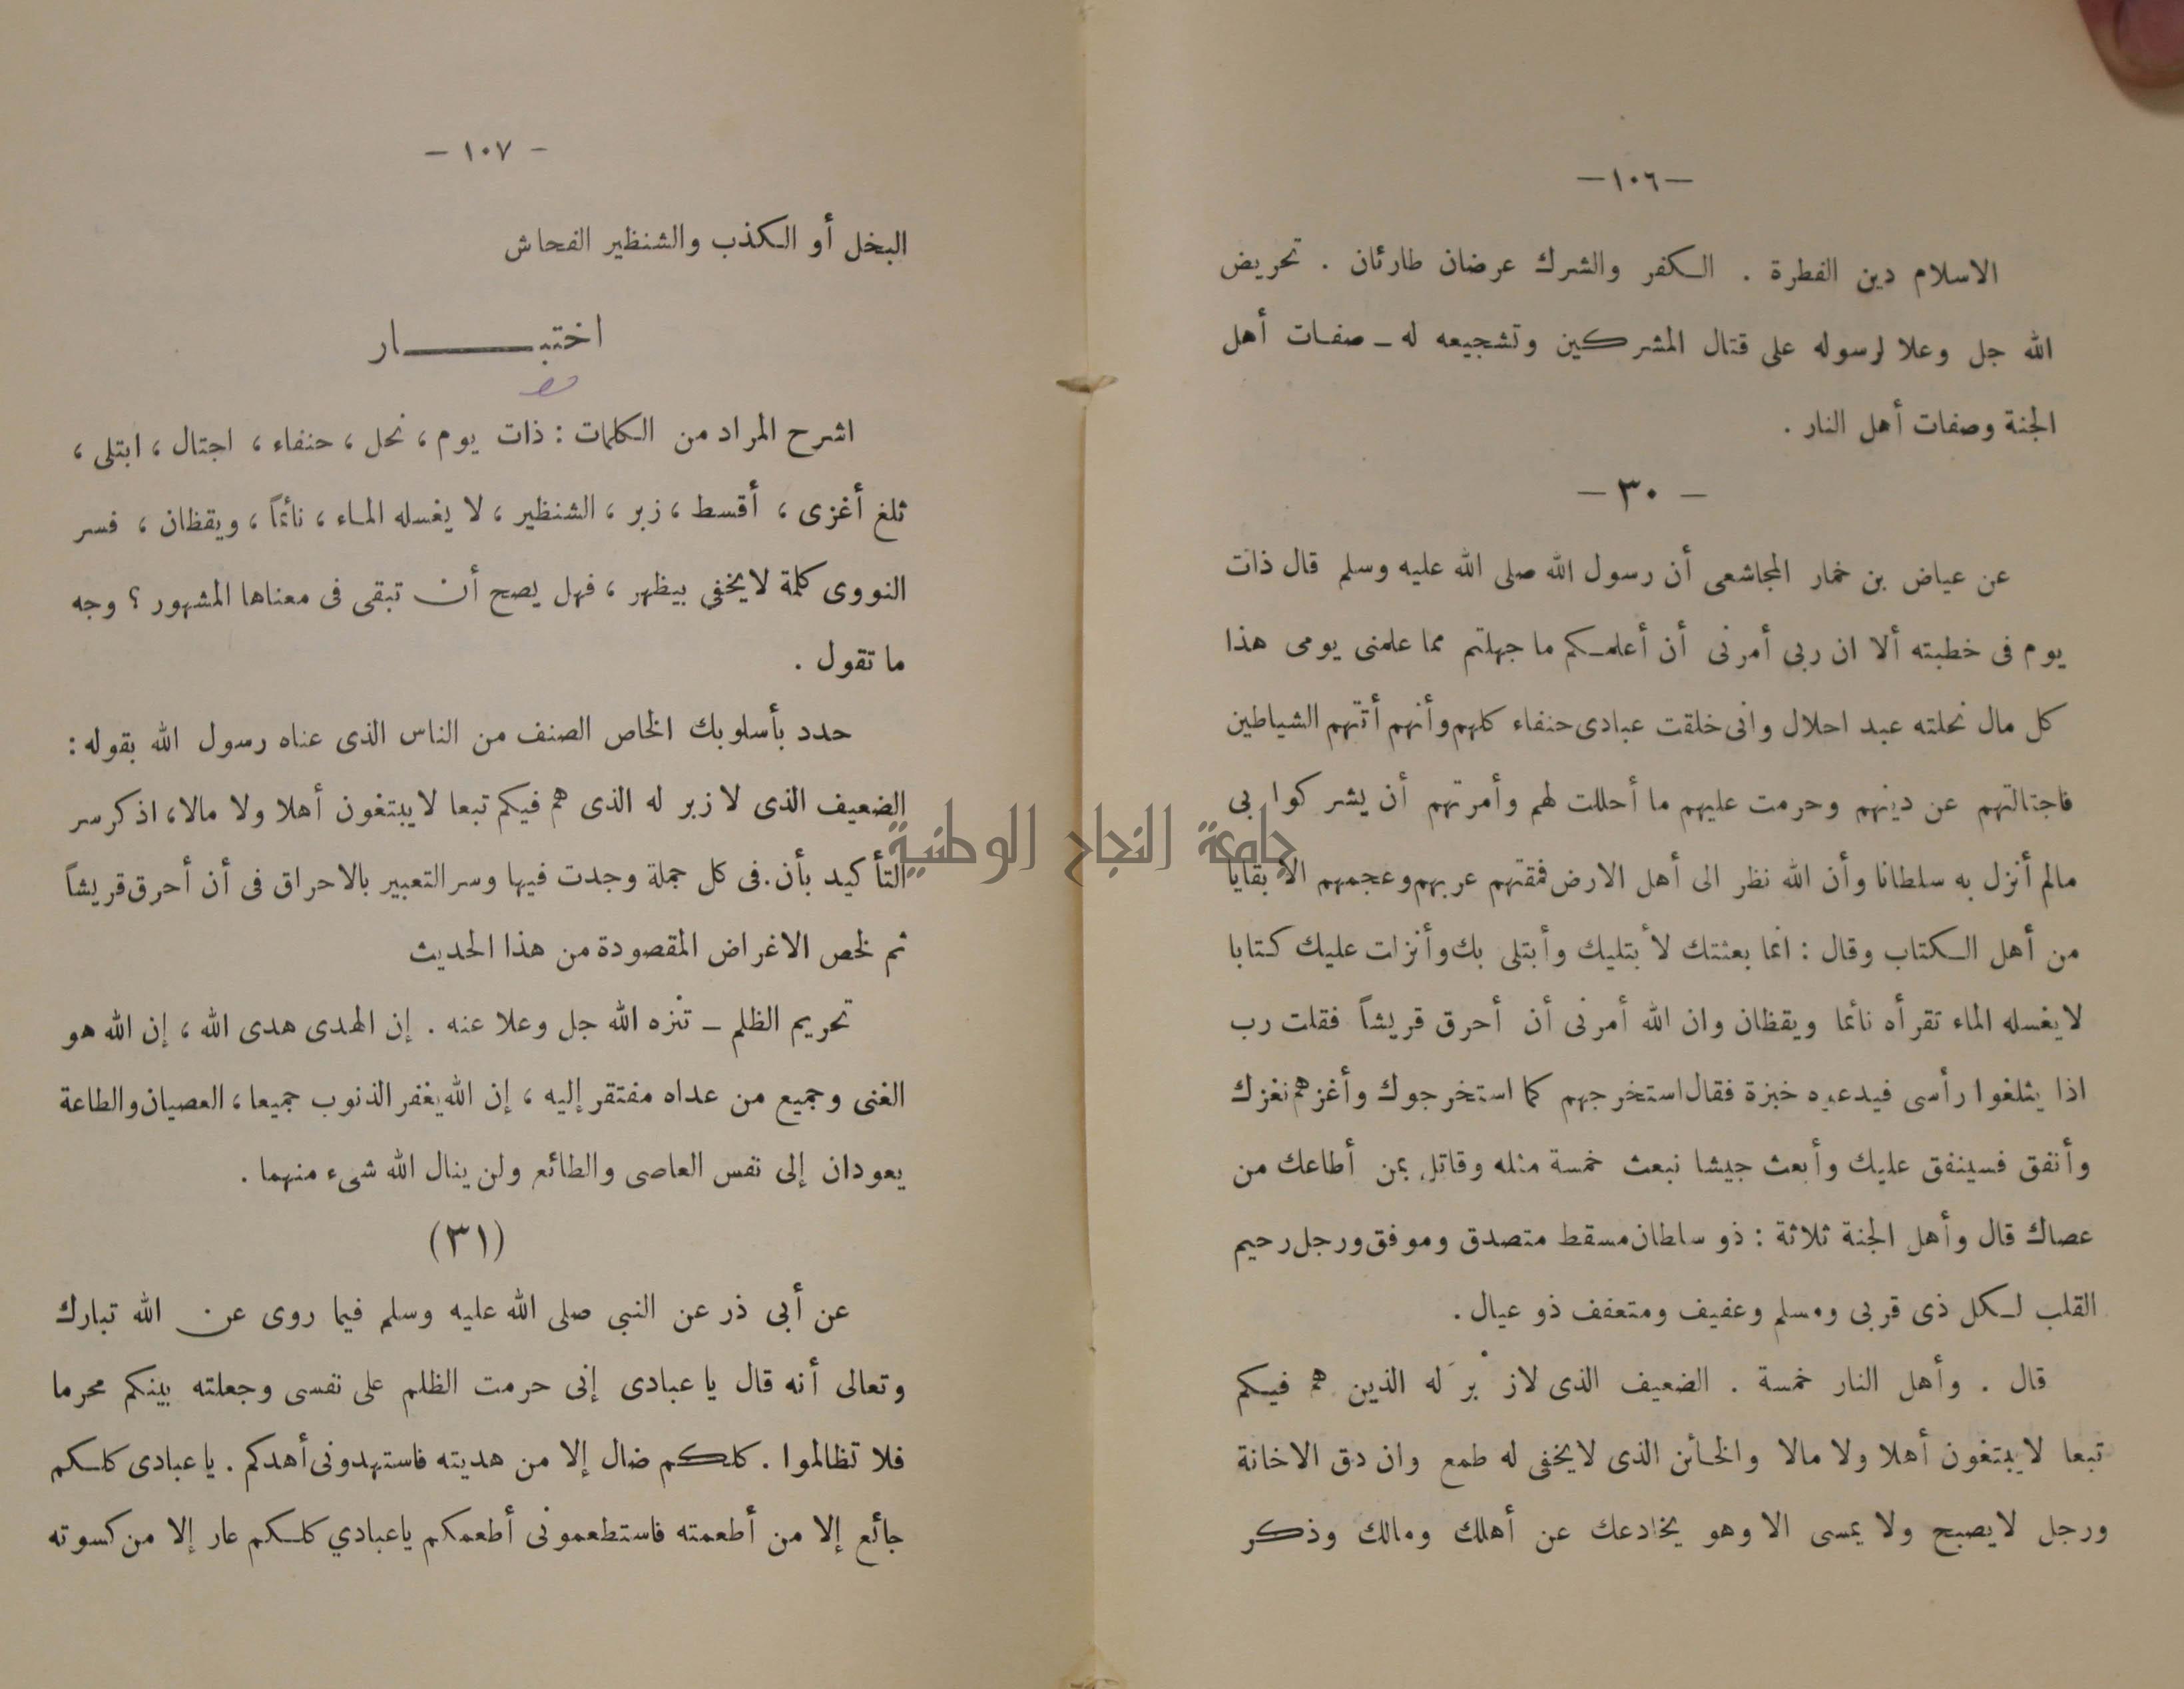 —١٠٦—
الاسلام دين الفطرة . الكفر والشرك عرضان طارئان . تحريض
الله جل وعلا لرسوله على قتال المشركين وتشجيعه له – صفات أهل
الجنة وصفات أهل النار .
— ٣٠ —
عن عياض بن خمار المجاشعى أن رسول الله صلى الله عليه وسلم قال ذات
يوم فى خطبته ألا ان ربى أمرنى أن أعلمكم ما جهلتم مما علمنى يومى هذا
كل مال نحلته عبد احلال وانى خلقت عبادى حنفاء كلهم وأنهم أتتهم الشياطين
فاجتالتهم عن دينهم وحرمت عليهم ما أحللت لهم وأمرتهم أن يشركوا بى
مالم أنزل به سلطانا وأن الله نظر الى أهل الارض فمقتهم عربهم وعجمهم الا بقايا
من أهل الكتاب وقال : انما بعثتك لأبتليك وأبتلى بك وأنزلت عليك كتابا
لا يغسله الماء تقرأه نائما ويقظان وان الله أمرنى أن أحرق قريشاً فقلت رب
اذا يثلغوا رأسى فيدعوه خبزة فقال استخرجهم كما استخرجوك وأغزهم نغزك
وأنفق فسينفق عليك وأبعث جيشا نبعث خمسة مثله وقاتل بمن أطاعك من
عصاك قال وأهل الجنة ثلاثة : ذو سلطان مسقط متصدق وموفق ورجل رحيم
القلب لكل ذى قربى ومسلم وعفيف ومتعفف ذو عيال .
قال . وأهل النار خمسة . الضعيف الذى لاز ْ بر َ له الذين هم فيكم
تبعا لا يبتغون أهلا ولا مالا والخائن الذى لا يخفى له طمع وان دق الاخانة
ورجل لا يصبح ولا يمسى الا وهو يخادعك عن أهلك ومالك وذكر
— ١٠٧ —
البخل أو الكذب والشنظير الفحاش
اختبـــــار
اشرح المراد من الكلمات : ذات يوم ، نحل ، حنفاء ، اجتال ، ابتلى ،
ثلغ أغزى ، أقسط ، زبر ، الشنظير ، لا يغسله الماء ، نائماً ، ويقظان ، فسر
النووى كلمة لا يخفي بيظهر ، فهل يصح أن تبقى فى معناها المشهور ؟ وجه
ما تقول .
حدد بأسلوبك الخاص الصنف من الناس الذى عناه رسول الله بقوله :
الضعيف الذى لا زبر له الذى هم فيكم تبعا لا يبتغون أهلا ولا مالا ، اذكر سر
التأكيد بأن . فى كل جملة وجدت فيها وسر التعبير بالاحراق فى أن أحرق قريشاً
ثم لخص الاغراض المقصودة من هذا الحديث
تحريم الظلم – تنزه الله جل وعلا عنه . إن الهدى هدى الله ، إن الله هو
الغنى وجميع من عداه مفتقر إليه ، إن الله يغفر الذنوب جميعا ، العصيان والطاعة
يعودان إلى نفس العاصى والطائع ولن ينال الله شىء منهما .
(٣١)
عن أبى ذر عن النبي صلى الله عليه وسلم فيما روى عن الله تبارك
وتعالى أنه قال يا عبادى إنى حرمت الظلم على نفسى وجعلته بينكم محرما
فلا تظالموا . كلكم ضال إلا من هديته فاستهدونى أهدكم . يا عبادى كلكم
جائع إلا من أطعمته فاستطعمونى أطعمكم يا عبادي كلكم عار إلا من كسوته
جامعة النجاح الوطنية